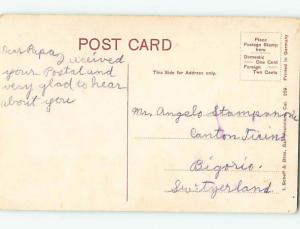 POST CARD
Place
Postage Stamp
here
Domestic
One Cent
Foreign
Two Cents
This Side for Address only.
Dear Papa
I recived
your Postal and
very glad to hear
about you
Mr. Angelo
Canton Ticino
Bigorio
Switzerland
Printed in Germany